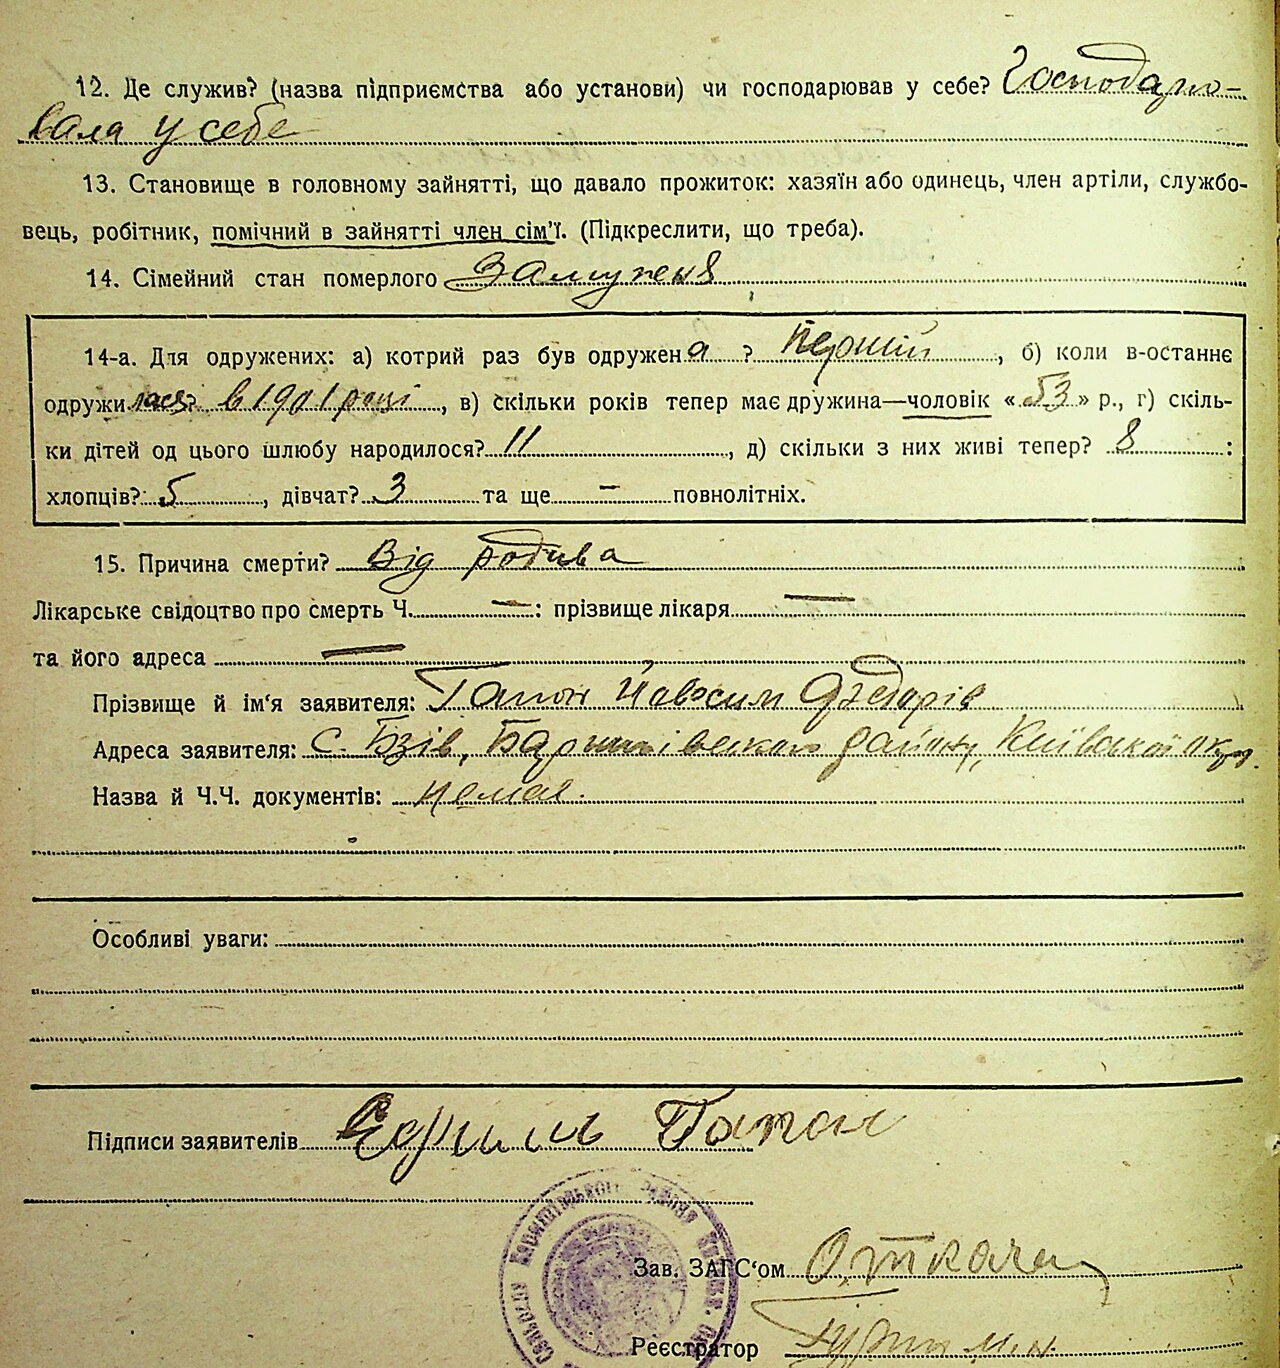 12. Де служив? (назва підприємства або установи) чи господарював у себе? Господарю-
вала у себе
13. Становище в головному зайнятті, що давало прожиток: хазяїн або одинець, член артіли, службо-
вець, робітник, помічний в зайнятті член сім'ї. (Підкреслити, що треба).
14. Сімейний стан померлого Замужня
14-а. Для одружених: а) котрий раз був одружена ? Перший, б) коли в-останнє
одружилася? в 1901 році, в) скільки років тепер має дружина—чоловік «53» р., г) скіль-
ки дітей од цього шлюбу народилося? 11, д) скільки з них живі тепер? 8:
хлопців? 5, дівчат? 3 та ще – повнолітніх.
15. Причина смерти? Від родива
Лікарське свідоцтво про смерть Ч. —: прізвище лікаря —
та його адреса —
Прізвище й ім'я заявителя: Гапон
Адреса заявителя: с. Бзів, Баришівського району, Київської окр.
Назва й Ч.Ч. документів: немая.
Особливі уваги:
Підписи заявителів Гапон
Зав. ЗАГС'ом О. Ткача
Реєстратор